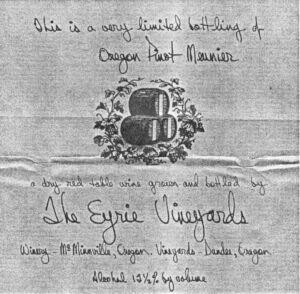 This is a very limited bottling of
Oregon Pinot Meunier
a dry red table wine grown and bottled by
The Eyrie Vineyards
Winery - McMinnville, Oregon. Vineyards - Dundee, Oregon
Alcohol 12½% by volume